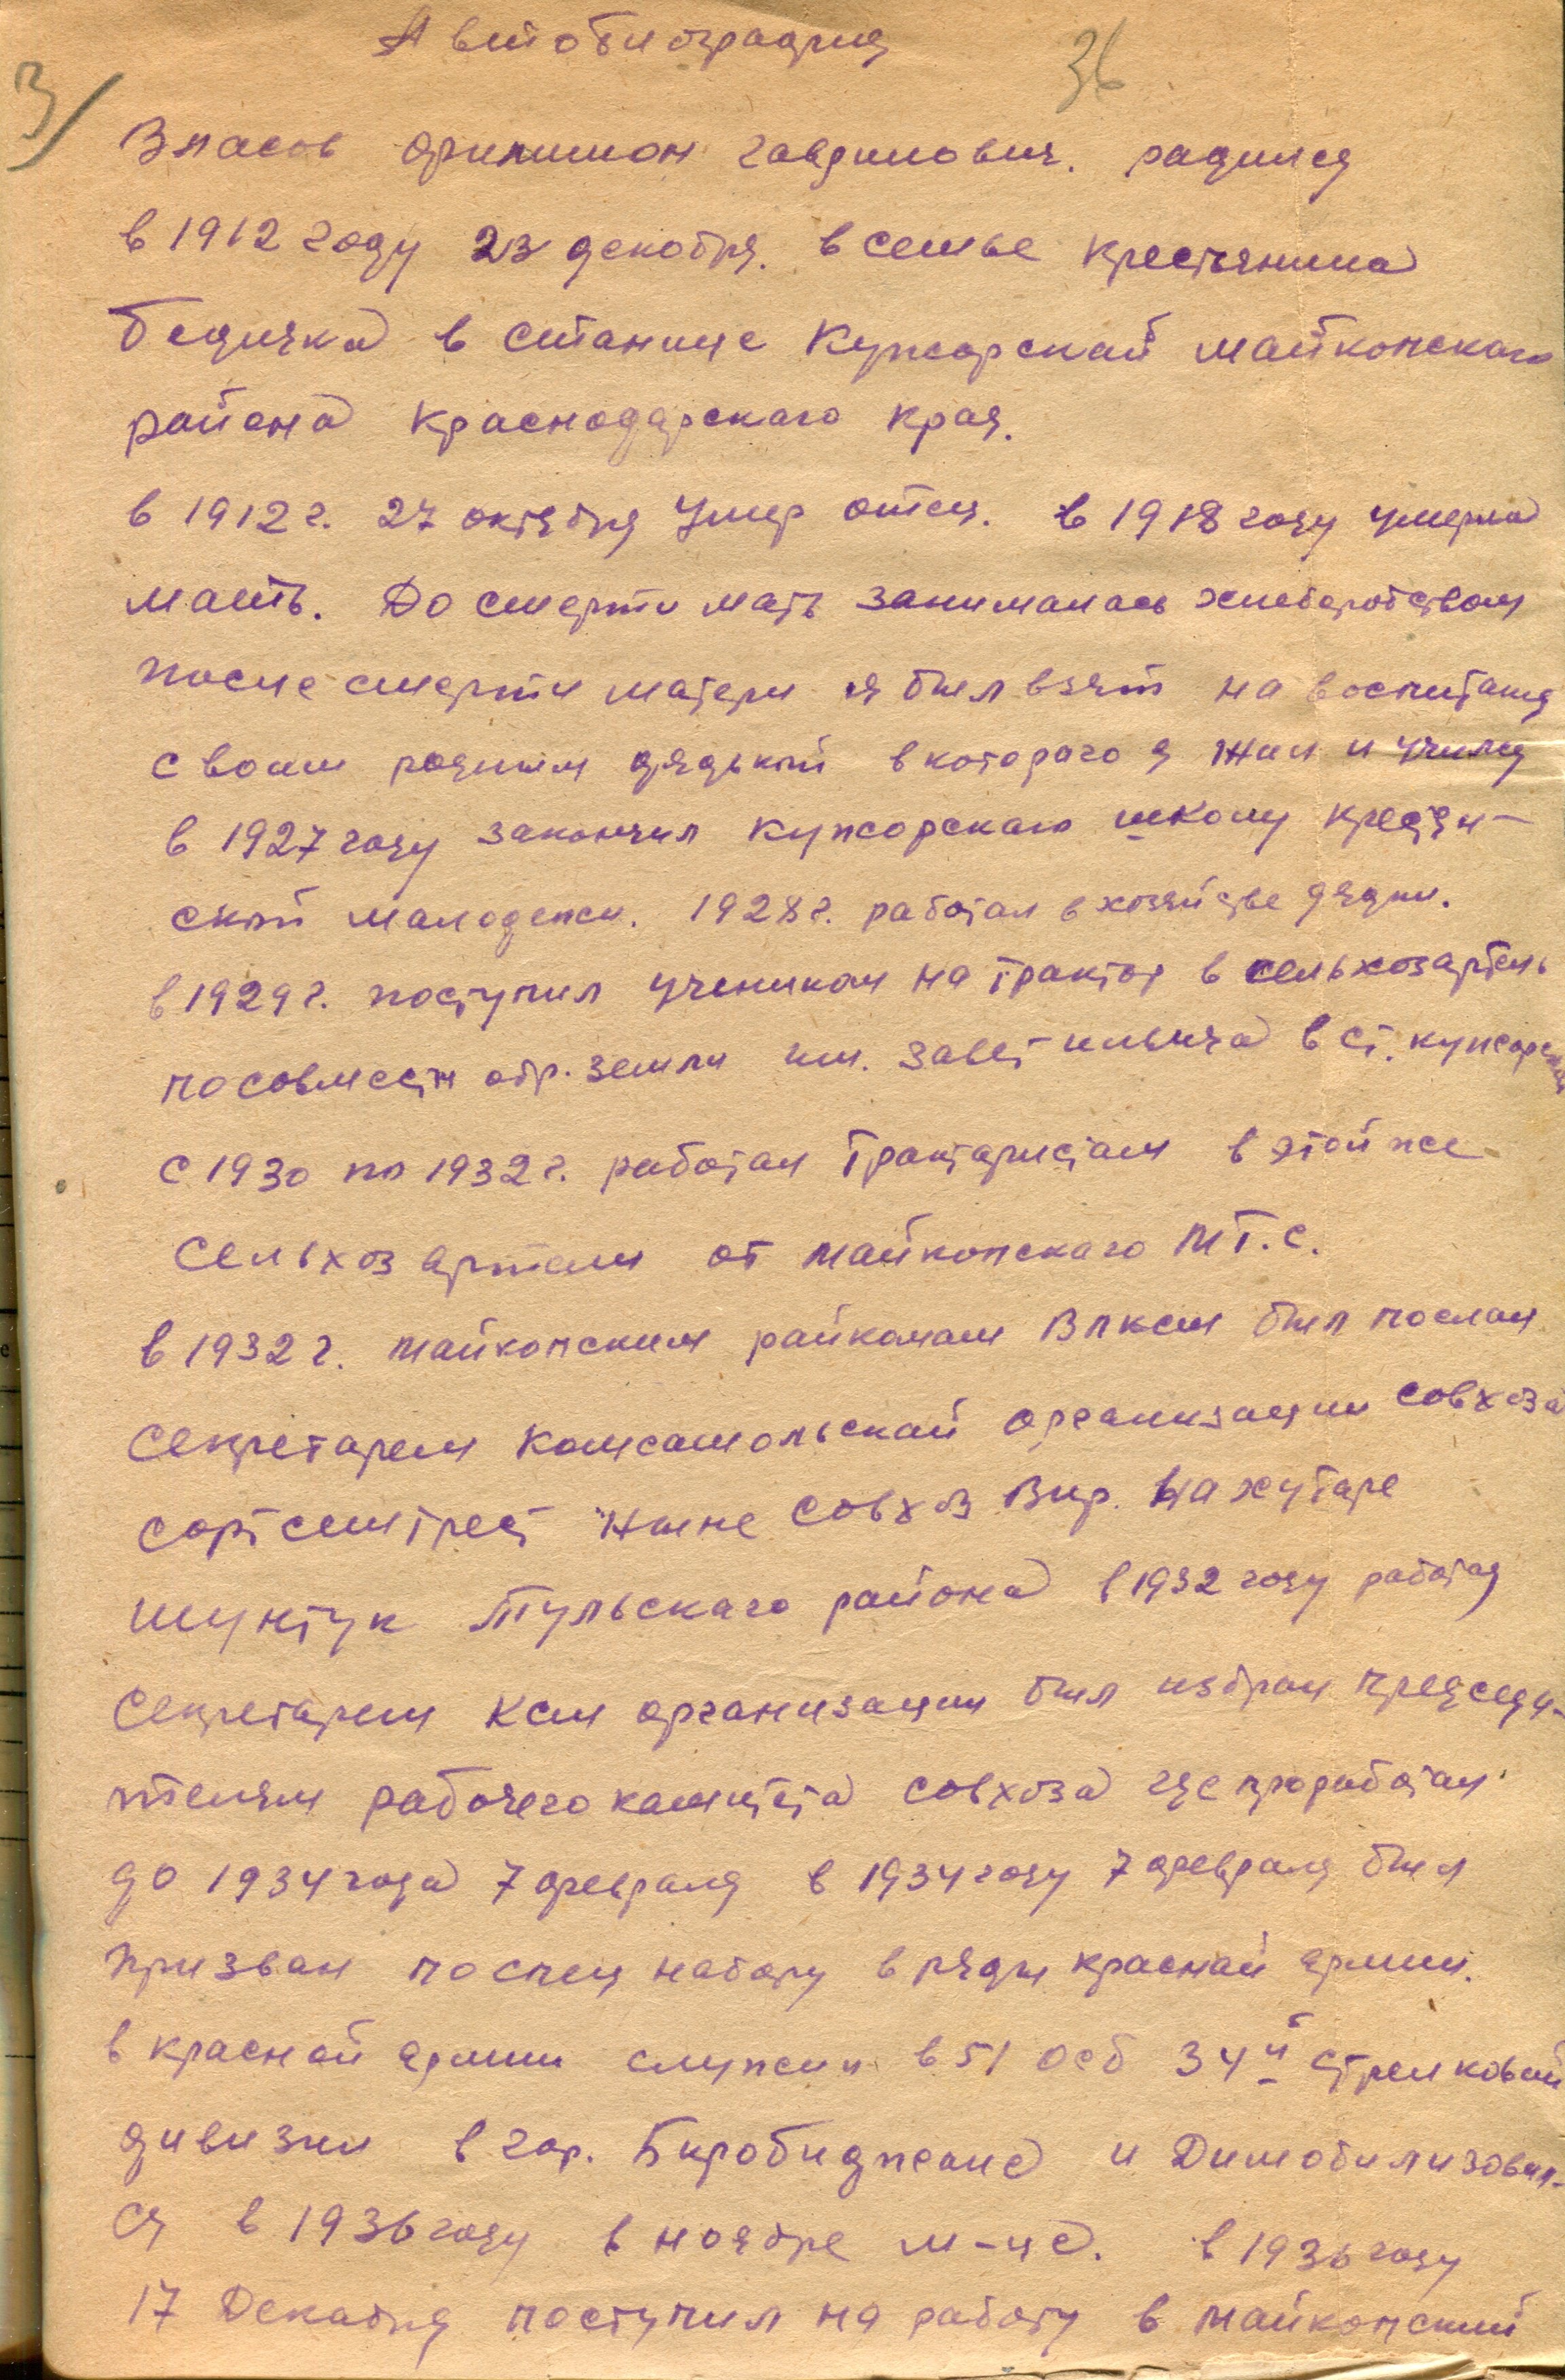 Автобиография
36
3/
Власов филимон гаврилович. радился
в 1912 году 23 декобря. в семье крестьянина
бедняка в станице Кужорской майкопского
района краснодарского края.
в 1912 г. 27 октября умер отец. в 1918 году умерла
мать. До смерти мать занималась хлеборобством
после смерти матери я был взят на воспитания
своим родным дядькой в котораго я жил и учился
в 1927 году закончил кужорскаю школу крестян-
ской молодежи. 1928 г. работал в хозяйстве дядки.
в 1929 г. поступил учеником на трактор в сельхозартель
по совместн обр. земли им. завет ильича в ст. кужорской
с 1930 по 1932 г. работал трактаристам в этой же
сельхоз артели от майкопскаго М.Т.С.
в 1932 г. майкопским райкомам влксм был послан
секретарем комсамольскай организации совхоза
сортсемтрест ныне совхоз Вир. на хутаре
шунтук Тульскаго района в 1932 году работая
секретарем ксм организации был избран председа-
телям рабочего камитета совхоза где проработал
до 1934 года 7 февраля в 1934 году 7 февраля был
призван по спец набору в ряды краснай армии.
в краснай армии служил в 51 осб 34й стрелковай
дивизии в гор. Биробиджане и Димобилизовал-
ся в 1936 году в ноябре м-це. в 1936 году
17 Декабря поступил на работу в майкопский